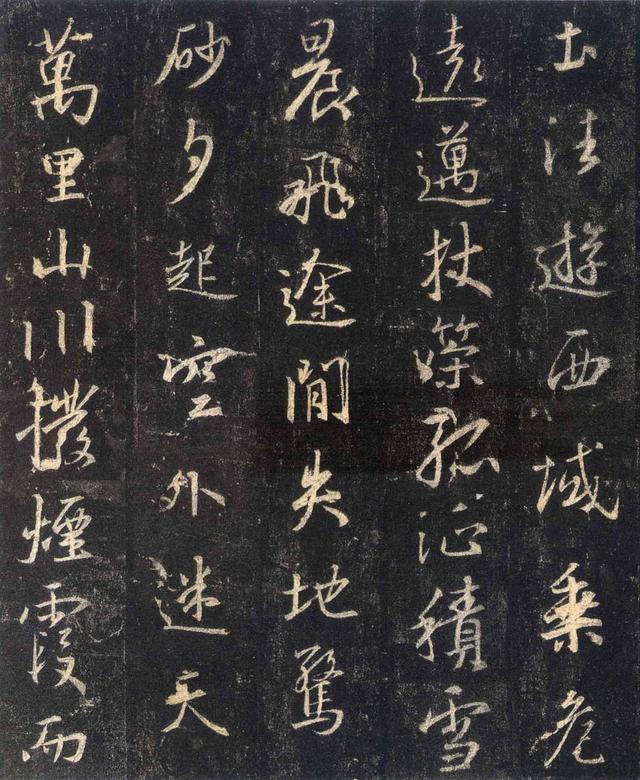 土往遊西域乘危
遠邁杖策孤征積雪
晨飛途閒失地驚
砂夕起空外迷天
萬里山川撥煙霞而